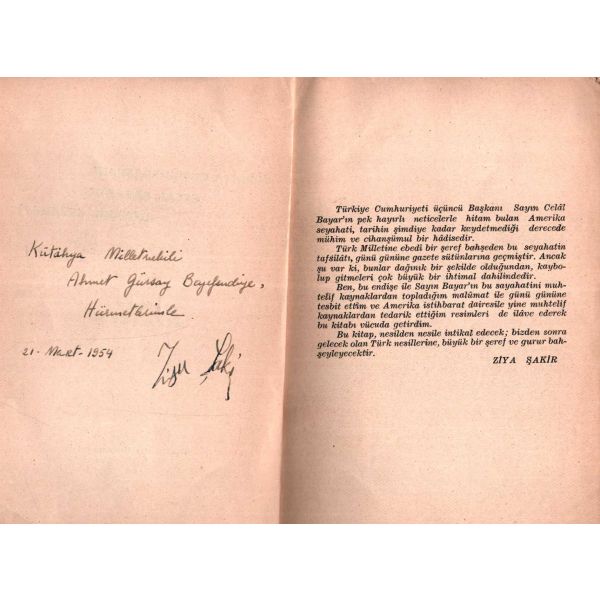 Kütahya Milletvekili
Ahmet Gürsoy Beyefendiye,
Hürmetlerimle.
21. Mart. 1954
Ziya Şakir
Türkiye Cumhuriyeti üçüncü Başkanı Sayın Celâl
Bayar'ın pek hayırlı neticelerle hitam bulan Amerika
seyahati, tarihin şimdiye kadar kaydetmediği derecede
mühim ve cihanşümul bir hâdisedir.
Türk Milletine ebedî bir şeref bahşeden bu seyahatin
tafsilâtı, günü gününe gazete sütunlarına geçmiştir. Ancak
şu var ki, bunlar dağınık bir şekilde olduğundan, kaybo-
lup gitmeleri çok büyük bir ihtimal dahilindedir.
Ben, bu endişe ile Sayın Bayar'ın bu sayahatini muh-
telif kaynaklardan topladığım malûmat ile günü gününe
tesbit ettim ve Amerika istihbarat dairesile yine muhtelif
kaynaklardan tedarik ettiğim resimleri de ilâve ederek
bu kitabı vücuda getirdim.
Bu kitap, nesilden nesile intikal edecek; bizden sonra
gelecek olan Türk nesillerine, büyük bir şeref ve gurur bah-
şeyleyecektir.
ZİYA ŞAKİR